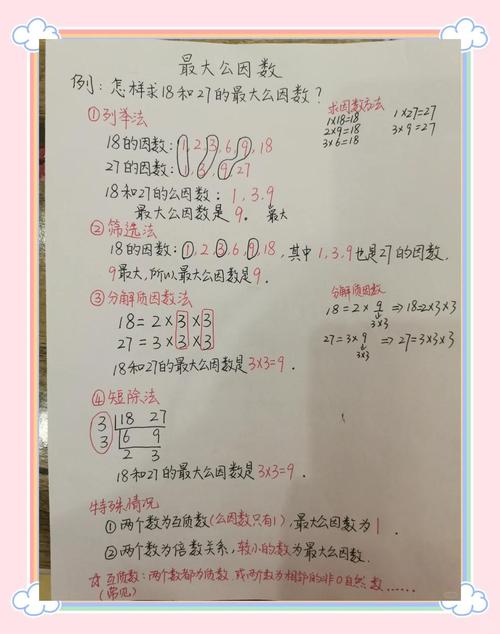 最大公因数
例：怎样求18和27的最大公因数？
①列举法
18的因数：1,2,3,6,9,18
27的因数：1,3,9,27
18和27的公因数：1,3,9
最大公因数是9。 最大
求因数方法
1×18=18 1×27=27
2×9=18 3×9=27
3×6=18
②筛选法
18的因数：1,2,3,6,9,18，其中1,3,9也是27的因数.
9最大,所以最大公因数是9.
③分解质因数法
18=2×3×3
27=3×3×3
18和27的最大公因数是3×3=9.
分解质因数
18=2×9 ⇒18=2×3×3
3×3
27=3×9 ⇒27=3×3×3
3×3
④短除法
3 18 27
3 6 9
2 3
18和27的最大公因数是3×3=9.
特殊情况
①两个数为互质数(公因数只有1),最大公因数为1.
②两个数为倍数关系,较小的数为最大公因数.
☆互质数：两个数都为质数,或两个数为相邻的非0自然数……
(常见)